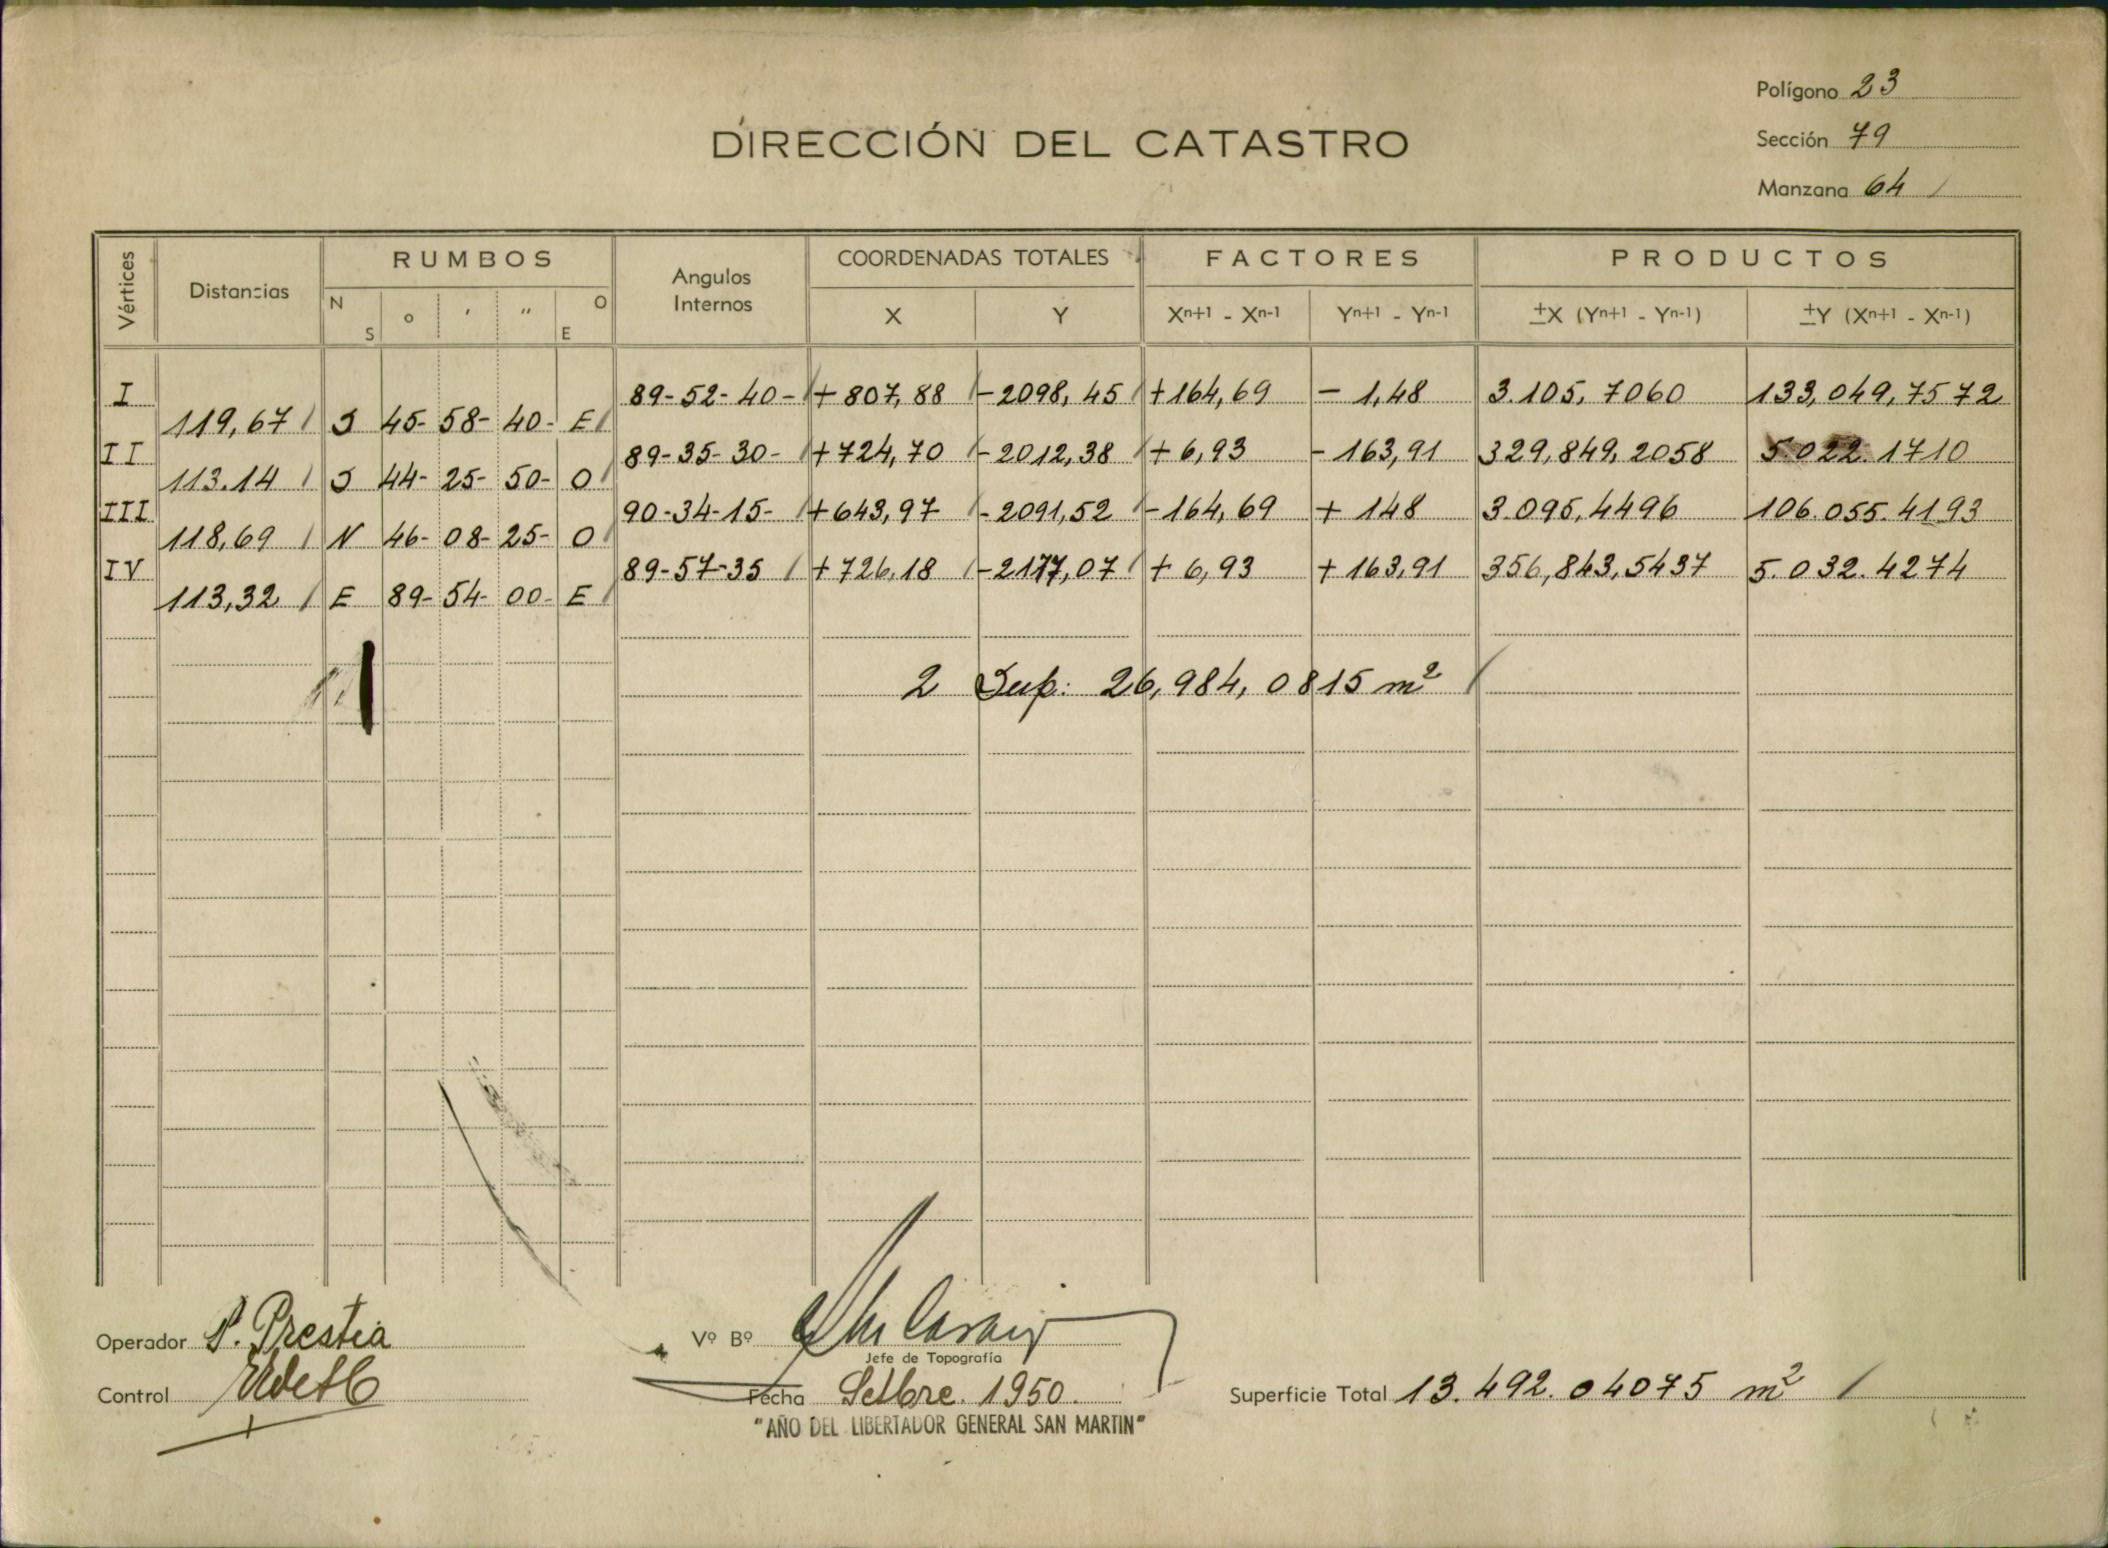 Polígono 23
DIRECCIÓN DEL CATASTRO
Sección 79
Manzana 64
Vértices
Distancias
RUMBOS
N S o ' " O E
Angulos Internos
COORDENADAS TOTALES
X Y
FACTORES
Xn+1 - Xn-1 Yn+1 - Yn-1
PRODUCTOS
±X (Yn+1 - Yn-1) ±Y (Xn+1 - Xn-1)
I 89-52-40- +807,88 -2098,45 +164,69 - 1,48 3.105,7060 133,049,7572
119,67 S 45- 58- 40- E
II 89-35-30- +724,70 -2012,38 + 6,93 - 163,91 329,849,2058 5.022.1710
113.14 S 44- 25- 50- O
III 90-34-15- +643,97 -2091,52 -164,69 + 148 3.095,4496 106.055.4193
118,69 N 46- 08- 25- O
IV 89-57-35 +726,18 -2177,07 + 6,93 + 163,91 356,843,5437 5.032.4274
113,32 E 89- 54- 00- E
2 Sup: 26,984,0815 m²
Operador P. Prestia
Vº Bº
Jefe de Topografía
Control
Fecha Setbre. 1950.
Superficie Total 13.492.04075 m²
"AÑO DEL LIBERTADOR GENERAL SAN MARTIN"